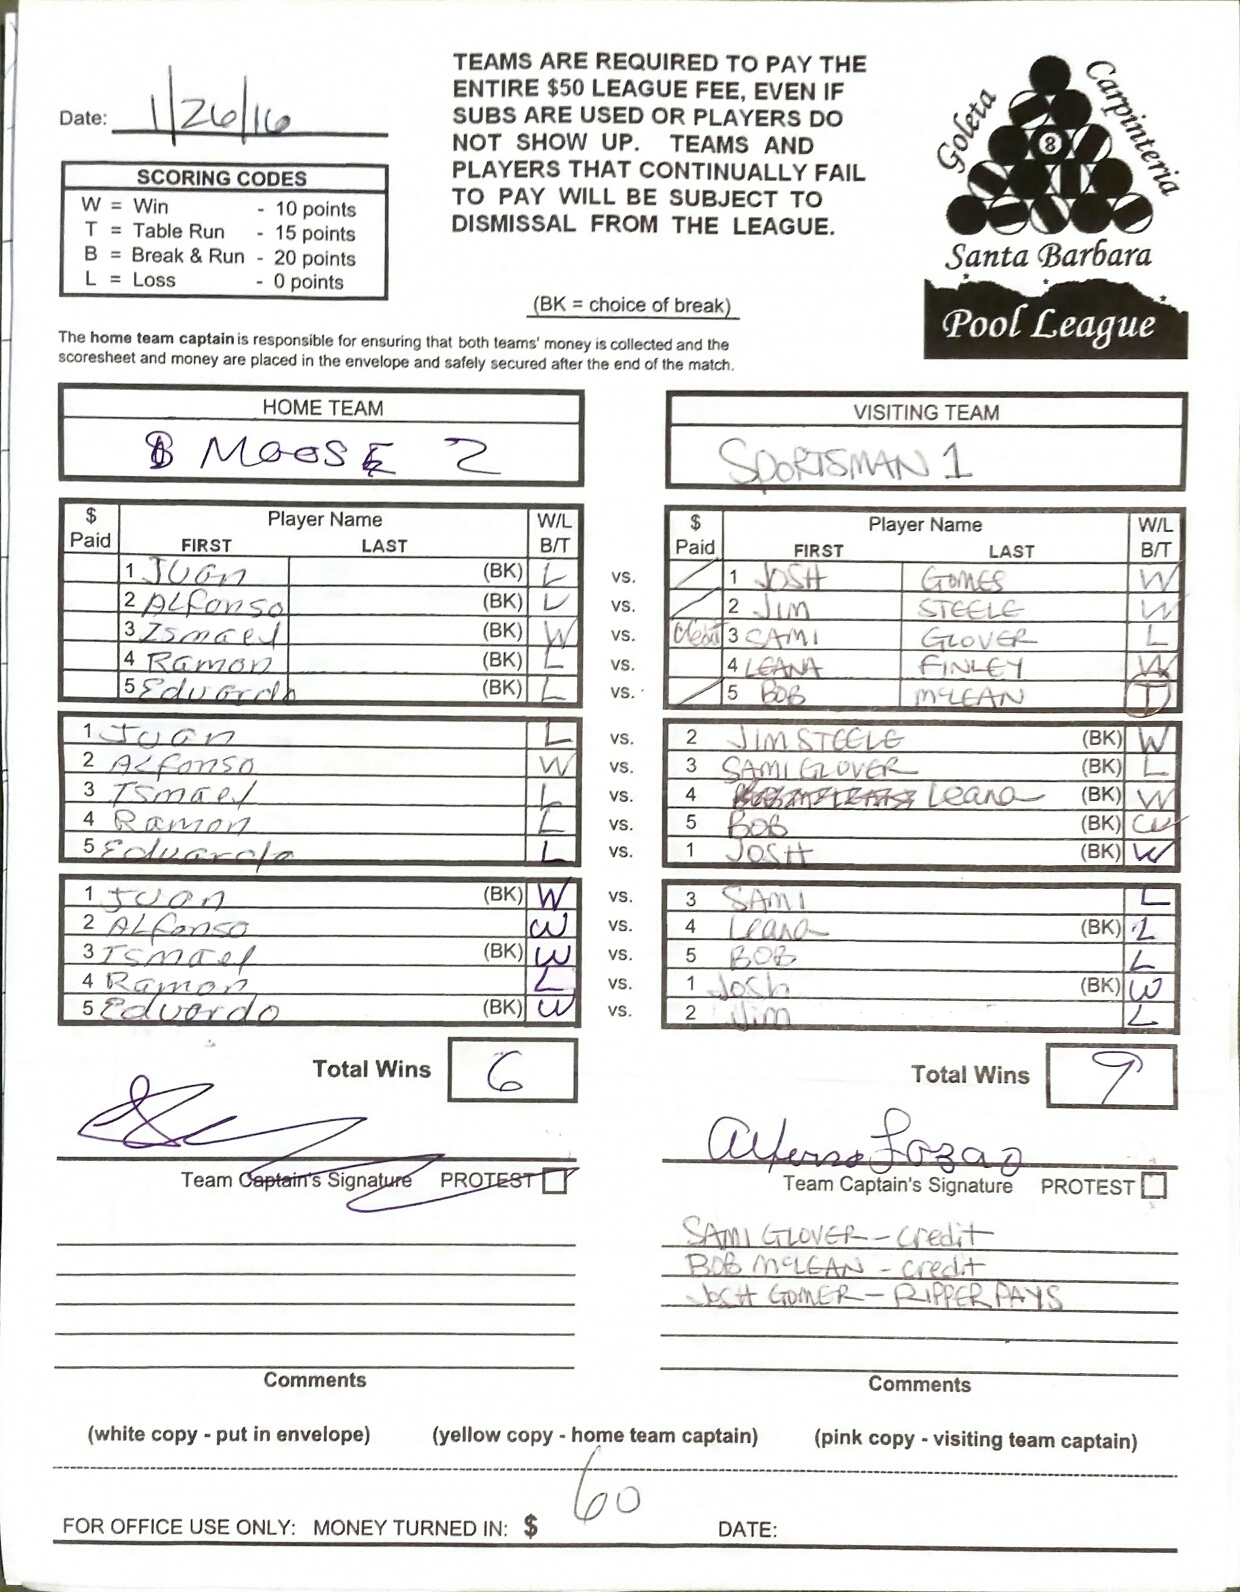 TEAMS ARE REQUIRED TO PAY THE
ENTIRE $50 LEAGUE FEE, EVEN IF
SUBS ARE USED OR PLAYERS DO
NOT SHOW UP. TEAMS AND
PLAYERS THAT CONTINUALLY FAIL
TO PAY WILL BE SUBJECT TO
DISMISSAL FROM THE LEAGUE.
Date: 1/26/16
SCORING CODES
W = Win - 10 points
T = Table Run - 15 points
B = Break & Run - 20 points
L = Loss - 0 points
(BK = choice of break)
Goleta
Carpinteria
8
Santa Barbara
Pool League
The home team captain is responsible for ensuring that both teams' money is collected and the
scoresheet and money are placed in the envelope and safely secured after the end of the match.
HOME TEAM VISITING TEAM
MOOSE 2 SPORTSMAN 1
$ Paid Player Name FIRST LAST W/L B/T $ Paid Player Name FIRST LAST W/L B/T
1 Juan (BK) L vs. 1 JOSH GOMES W
2 Alfonso (BK) L vs. 2 JIM STEELE W
3 Ismael (BK) W vs. 3 SAMI GLOVER L
4 Ramon (BK) L vs. 4 LEANA FINLEY W
5 Eduardo (BK) L vs. 5 BOB McLEAN T
1 Juan L vs. 2 JIM STEELE (BK) W
2 Alfonso W vs. 3 SAMI GLOVER (BK) L
3 Ismael L vs. 4 Leana (BK) W
4 Ramon L vs. 5 BOB (BK) W
5 Eduardo L vs. 1 JOSH (BK) W
1 Juan (BK) W vs. 3 SAMI L
2 Alfonso W vs. 4 Leana (BK) L
3 Ismael (BK) W vs. 5 BOB L
4 Ramon L vs. 1 Josh (BK) W
5 Eduardo (BK) W vs. 2 Jim L
Total Wins 6 Total Wins 9
Alfonso Lozao
Team Captain's Signature PROTEST Team Captain's Signature PROTEST
SAMI GLOVER - credit
BOB McLEAN - credit
JOSH GOMER - RIPPER PAYS
Comments Comments
(white copy - put in envelope) (yellow copy - home team captain) (pink copy - visiting team captain)
FOR OFFICE USE ONLY: MONEY TURNED IN: $ 60 DATE: